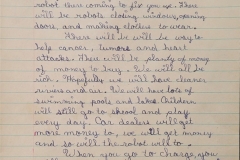 robot then coming to fix you up. There
will be robots closing windows, opening
doors and making clothes to wear.
There will be will be way to
help cancer, tumors and heart
attacks. There will be plenty of money
of money to buy. We will all be
rich. Hopefully we will have cleaner
rivers and air. We will have lots of
swimming pools and lakes. Children
will still go to shool and play
every day. Car dealers will get
more money to, we will get money
and so will the robot will to.
When you go to change you